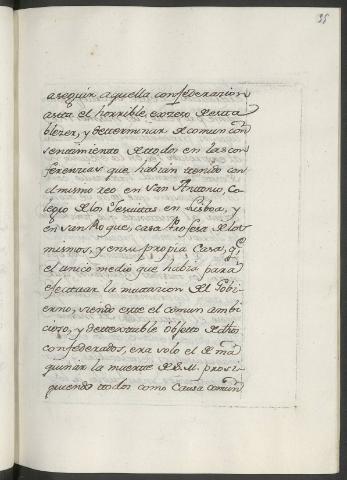 35
aseguir aquella confederazion
asta el horrible exzeso de esta
blezer, y determinar de comun con
sentimiento de todos en las con
ferencias que habian tenido con
el mismo reo en San Antonio, Co
legio de los Jesuitas en Lisboa, y
en San Roque, casa Profesa de los
mismos, y en su propia Casa, qe
el unico medio que habia para
efectuar la mutazion del Gobi
erno, siendo este el comun ambi
cioso, y detestable objeto de dhos
confederados, era solo el de ma
quinar la muerte de S.M. prosi
guiendo todos como causa comun